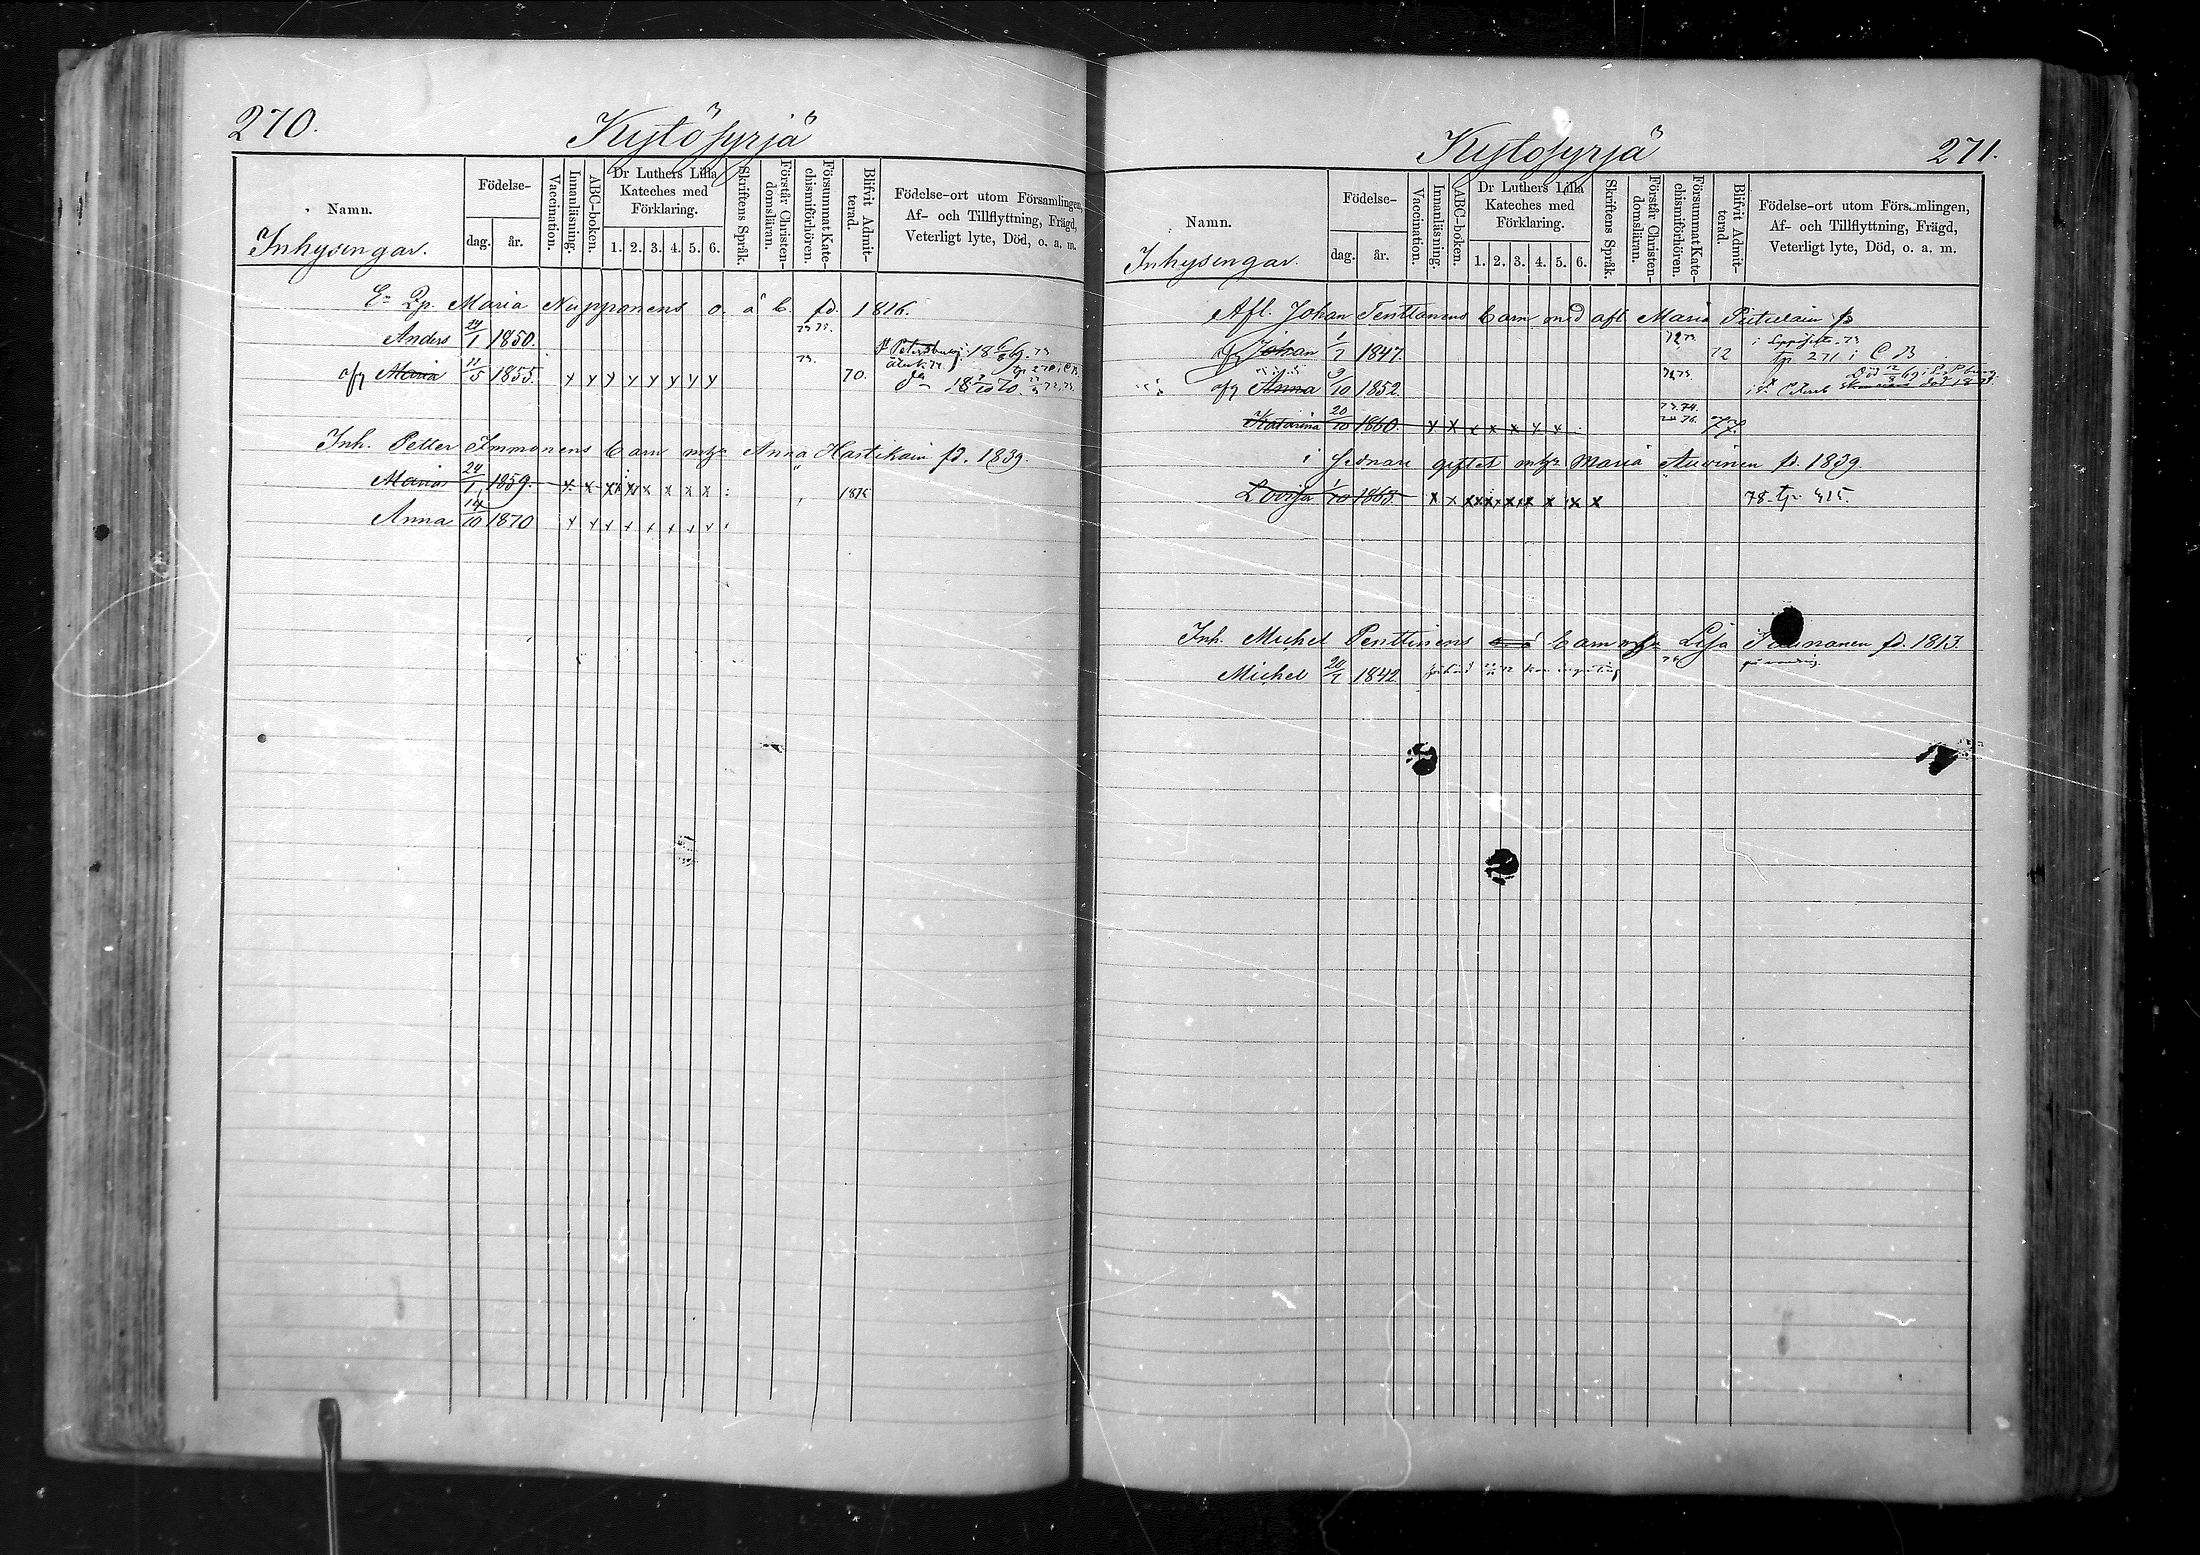 270.
Kytösyrjä
Namn.
Inhysingar.
Födelse-
dag.
år.
Vaccination.
Innanläsning.
ABC-boken.
Dr Luthers Lilla
Kateches med
Förklaring.
1. 2. 3. 4. 5. 6.
Skriftens Språk.
Förstår Christen-
domsläran.
Försummat Kate-
chismiförhören.
Blifvit Admit-
terad.
Födelse-ort utom Församlingen,
Af- och Tillflyttning, Frägd,
Veterligt lyte, Död, o. a. m.
Maria Nupponens o. ä. b. fd. 1816.
Anders 24/1 1850. 73
St Petersburg
afg Maria 11/5 1855. x x x x x x x x 73. 70.
Inh. Petter Immonens barn m/h Anna Hartikain fd. 1839.
Maria 24/1 1859. x x x x x x x x 1876
Anna 14/10 1870 x x x x x x x x
Kytösyrjä
271.
Namn.
Inhysingar
Födelse-
dag.
år.
Vaccination.
Innanläsning.
ABC-boken.
Dr Luthers Lilla
Kateches med
Förklaring.
1. 2. 3. 4. 5. 6.
Skriftens Språk.
Förstår Christen-
domsläran.
Försummat Kate-
chismiförhören.
Blifvit Admit-
terad.
Födelse-ort utom Församlingen,
Af- och Tillflyttning, Frägd,
Veterligt lyte, Död, o. a. m.
Afl. Johan Penttonens barn med afl. Maria
afg Johan 1/7 1847. 72 tp 271 i C B
afg Anna 9/10 1852.
Katarina 20/10 1860. x x x x x x x 77.
i sednare giftet m/h Maria Auvinen fd. 1839.
Lovisa 1/10 1865. x x x x x x x x x 78 tp 415.
Inh. Michel Penttinens barn m/h Lisa fd. 1813.
Michel 20/7 1842